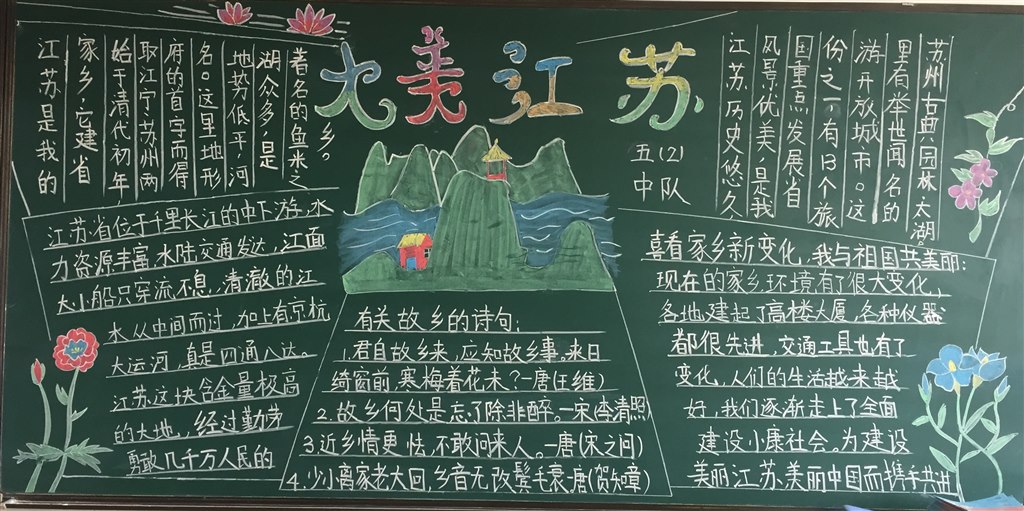 大美江苏
五(2)
中队
江苏是我的
家乡,它建省
始于清代初年,
取江宁、苏州两
府的首字而得
名。这里地形
地势低平,河
湖众多,是
著名的鱼米之
乡。
江苏省位于千里长江的中下游,水
力资源丰富,水陆交通发达,江面
大小船只穿流不息,清澈的江
水从中间而过,加上有京杭
大运河,真是四通八达。
江苏这块含金量极高
的大地,经过勤劳
勇敢几千万人民的
有关故乡的诗句:
1.君自故乡来,应知故乡事。来日
绮窗前,寒梅着花未?—唐(王维)
2.故乡何处是,忘了除非醉。—宋(李清照)
3.近乡情更怯,不敢问来人。—唐(宋之问)
4.少小离家老大回,乡音无改鬓毛衰—唐(贺知章)
江苏历史悠久
风景优美,是我
国重点发展省
份之一,有13个旅
游开放城市。这
里有举世闻名的
苏州古典园林、太湖。
喜看家乡新变化,我与祖国共美丽:
现在的家乡环境有了很大变化,
各地建起了高楼大厦,各种仪器
都很先进,交通工具也有了
变化,人们的生活越来越
好,我们逐渐走上了全面
建设小康社会。为建设
美丽江苏、美丽中国而携手共进